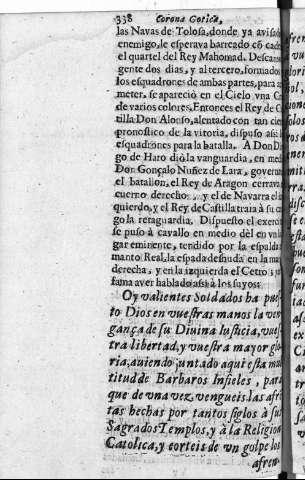 338 Corona Gotica,
las Navas de Tolosa, donde ya avisto
enemigo, le esperava barreado cõ cade
el quartel del Rey Mahomad. Descans
gente dos dias, y al tercero, formados
los esquadrones de ambas partes, para a
meter, se apareciò en el Cielo vna C
de varios colores. Entonces el Rey de C
tilla Don Alonso, alentado con tan cie
pronostico de la vitoria, dispuso assi l
esquadrones para la batalla. A Don Di
go de Haro diò la vanguardia, en med
Don Gonçalo Nuñez de Lara, governa
el batallon, el Rey de Aragon cerrava
cuerno derecho, y el de Navarra el i
quierdo, y el Rey de Castilla traìa à su c
go la retaguardia. Dispuesto el exerci
se puso à cavallo en medio dèl en va lu
gar eminente, tendido por la espalda
manto Real, la espada desnuda en la ma
derecha, y en la izquierda el Cetro; y e
fama aver hablado assi à los suyos:
Oy valientes Soldados ha pue
to Dios en vuestras manos la ven
gança de su Divina Iusticia, vues
tra libertad, y vuestra mayor glo
ria, aviendo juntado aqui esta mul
titud de Barbaros Infieles, para
que de vna vez, vengueis las afre
tas hechas por tantos siglos à sus
Sagrados Templos, y à la Religion
Catolica, y corteis de vn golpe los
afren-